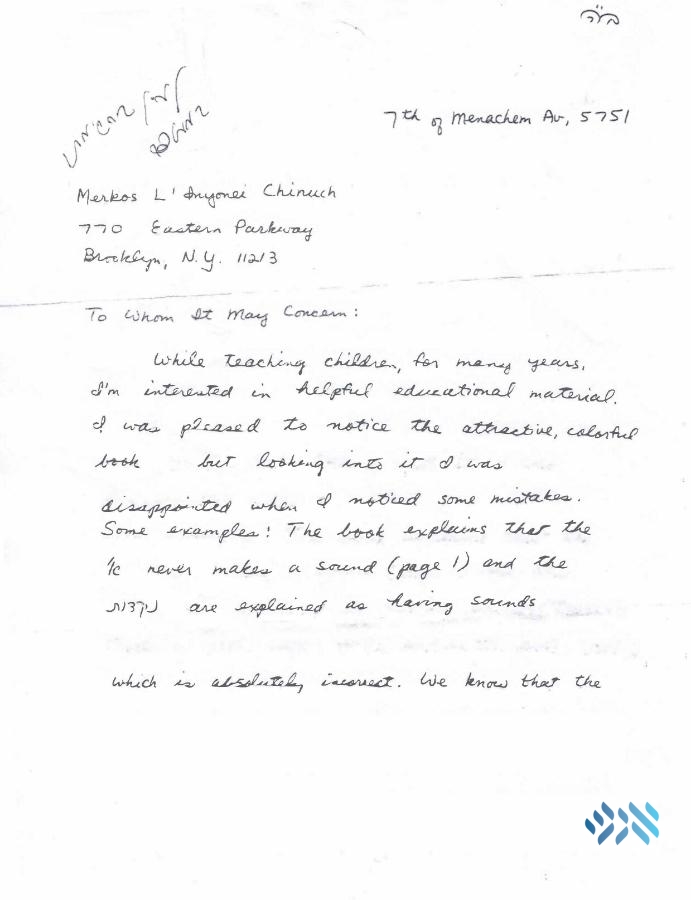 ב"ה
7th of Menachem Av, 5751
Merkos L'Inyonei Chinuch
770 Eastern Parkway
Brooklyn, N.Y. 11213
To Whom It May Concern:
While teaching children, for many years,
I'm interested in helpful educational material.
I was pleased to notice the attractive, colorful
book but looking into it I was
disappointed when I noticed some mistakes.
Some examples: The book explains that the
א never makes a sound (page 1) and the
נקודות are explained as having sounds
which is absolutely incorrect. We know that the